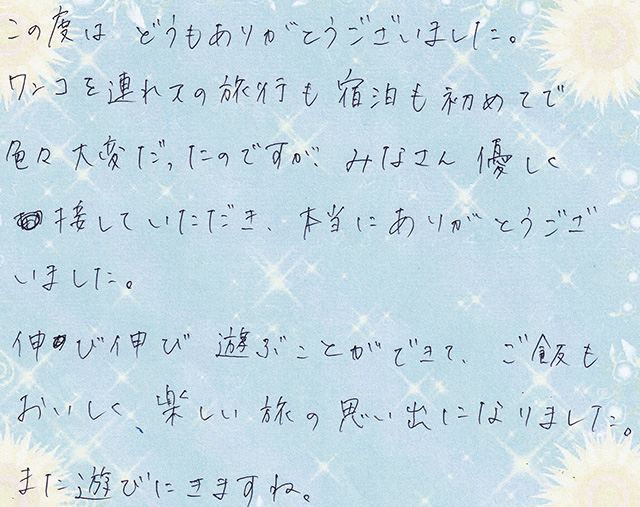 この度は どうもありがとうございました。
ワンコを連れての旅行も宿泊も初めてで
色々大変だったのですが、みなさん優しく
接していただき、本当にありがとうござ
いました。
伸び伸び遊ぶことができて、ご飯も
おいしく、楽しい旅の思い出になりました。
また遊びにきますね。